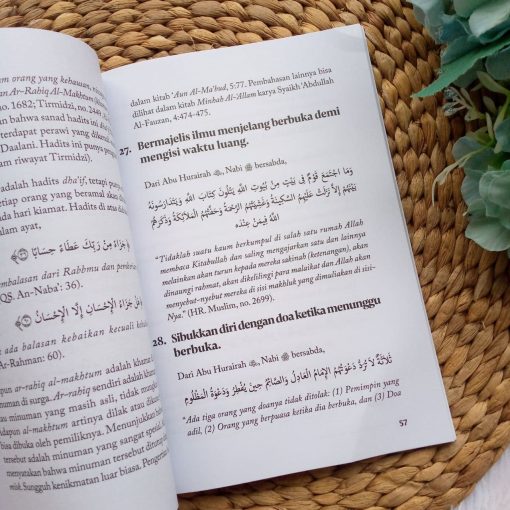 orang yang kehausan,
Ar-Rahiq Al-Makhtum
no. 1682; Tirmidzi, no.
bahwa sanad hadits ini
terdapat perawi yang
Daalani. Hadits ini punya
riwayat Tirmidzi).
adalah hadits dha'if, tetapi
orang yang beramal akan
hari kiamat. Hadits di atas
dalam ayat,
﴿جَزَاءً مِنْ رَبِّكَ عَطَاءً حِسَابًا
pembalasan dari Rabbmu dan
(QS. An-Naba': 36).
هَلْ جَزَاءُ الْإِحْسَانِ إِلَّا الْإِحْسَانُ
ada balasan kebaikan kecuali
Ar-Rahman: 60).
ar-rahiq al-makhtum adalah khamar
minuman di surga. Ar-rahiq sendiri adalah khamar
minuman yang masih asli, tidak
Adapun al-makhtum artinya dilak atau
bisa dibuka oleh pemiliknya. Menunjukkan
tersebut adalah minuman yang sangat
menyatakan bahwa minuman tersebut ditutup
misk. Sungguh kenikmatan luar biasa.
dalam kitab 'Aun Al-Ma'bud, 5:77. Pembahasan lainnya bisa
dilihat dalam kitab Minhah Al-Allam karya Syaikh 'Abdullah
Al-Fauzan, 4:474-475.
27. Bermajelis ilmu menjelang berbuka demi
mengisi waktu luang.
Dari Abu Hurairah, Nabi ﷺ bersabda,
وَمَا اجْتَمَعَ قَوْمٌ فِي بَيْتٍ مِنْ بُيُوتِ اللَّهِ يَتْلُونَ كِتَابَ اللَّهِ وَيَتَدَارَسُونَهُ
بَيْنَهُمْ إِلَّا نَزَلَتْ عَلَيْهِمُ السَّكِينَةُ وَغَشِيَتْهُمُ الرَّحْمَةُ وَحَفَّتْهُمُ الْمَلَائِكَةُ وَذَكَرَهُمُ
اللَّهُ فِيمَنْ عِنْدَهُ
"Tidaklah suatu kaum berkumpul di salah satu rumah Allah
membaca Kitabullah dan saling mengajarkan satu dan lainnya
melainkan akan turun kepada mereka sakinah (ketenangan), akan
dinaungi rahmat, akan dikelilingi para malaikat dan Allah akan
menyebut-nyebut mereka di sisi makhluk yang dimuliakan di sisi-
Nya." (HR. Muslim, no. 2699).
28. Sibukkan diri dengan doa ketika menunggu
berbuka.
Dari Abu Hurairah, Nabi ﷺ bersabda,
ثَلَاثَةٌ لَا تُرَدُّ دَعْوَتُهُمُ الْإِمَامُ الْعَادِلُ وَالصَّائِمُ حِينَ يُفْطِرُ وَدَعْوَةُ الْمَظْلُومِ
"Ada tiga orang yang doanya tidak ditolak: (1) Pemimpin yang
adil, (2) Orang yang berpuasa ketika dia berbuka, dan (3) Doa
57